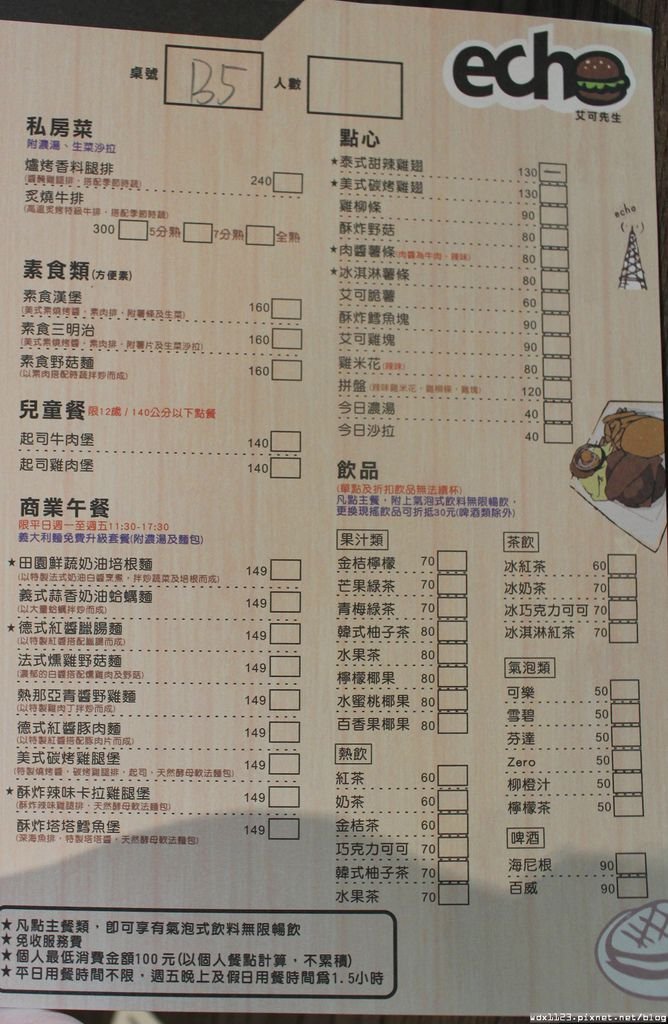 echo
艾可先生
桌號 B5 人數
私房菜
附濃湯、生菜沙拉
爐烤香料腿排 240
(醬醃雞腿排，搭配季節時蔬)
炙燒牛排
(高溫炙烤特級牛排，搭配季節時蔬)
300 5分熟 7分熟 全熟
素食類(方便素)
素食漢堡 160
(美式素燒烤醬，素肉排，附薯條及生菜)
素食三明治 160
(美式素燒烤醬，素肉排，附薯片及生菜沙拉)
素食野菇麵 160
(以素肉搭配時蔬拌炒而成)
兒童餐 限12歲/140公分以下點餐
起司牛肉堡 140
起司雞肉堡 140
商業午餐
限平日週一至週五11:30-17:30
義大利麵免費升級套餐(附濃湯及麵包)
★田園鮮蔬奶油培根麵 149
(以特製法式奶油白醬烹煮，拌炒蔬菜及培根而成)
義式蒜香奶油蛤蠣麵 149
(以大量蛤蠣拌炒而成)
★德式紅醬臘腸麵 149
(以特製紅醬搭配臘腸而成)
法式燻雞野菇麵 149
(濃郁的白醬搭配燻雞肉及野菇)
熱那亞青醬野雞麵 149
(以特製雞肉丁拌炒而成)
德式紅醬豚肉麵 149
(以特製紅醬搭配豚肉片而成)
美式碳烤雞腿堡 149
(特製燒烤醬，碳烤雞腿排，起司，天然酵母軟法麵包)
★酥炸辣味卡拉雞腿堡 149
(酥炸辣味雞腿排，天然酵母軟法麵包)
酥炸塔塔鱈魚堡 149
(深海魚排，特製塔塔醬，天然酵母軟法麵包)
點心
★泰式甜辣雞翅 130 一
★美式碳烤雞翅 130
雞柳條 90
酥炸野菇 80
★肉醬薯條(肉醬為牛肉，辣味) 80
★冰淇淋薯條 80
艾可脆薯 60
酥炸鱈魚塊 90
艾可雞塊 90
雞米花(辣味) 80
拼盤(辣味雞米花，雞柳條，雞塊) 120
今日濃湯 40
今日沙拉 40
echo
飲品
(單點及折扣飲品無法續杯)
凡點主餐，附上氣泡式飲料無限暢飲，
更換現搖飲品可折抵30元(啤酒類除外)
果汁類
金桔檸檬 70
芒果綠茶 70
青梅綠茶 70
韓式柚子茶 80
水果茶 80
檸檬椰果 80
水蜜桃椰果 80
百香果椰果 80
熱飲
紅茶 60
奶茶 60
金桔茶 60
巧克力可可 70
韓式柚子茶 70
水果茶 70
茶飲
冰紅茶 60
冰奶茶 70
冰巧克力可可 70
冰淇淋紅茶 70
氣泡類
可樂 50
雪碧 50
芬達 50
Zero 50
柳橙汁 50
檸檬茶 50
啤酒
海尼根 90
百威 90
★凡點主餐類，即可享有氣泡式飲料無限暢飲
★免收服務費
★個人最低消費金額100元(以個人餐點計算，不累積)
★平日用餐時間不限，週五晚上及假日用餐時間為1.5小時
wdx1123.pixnet.net/blog